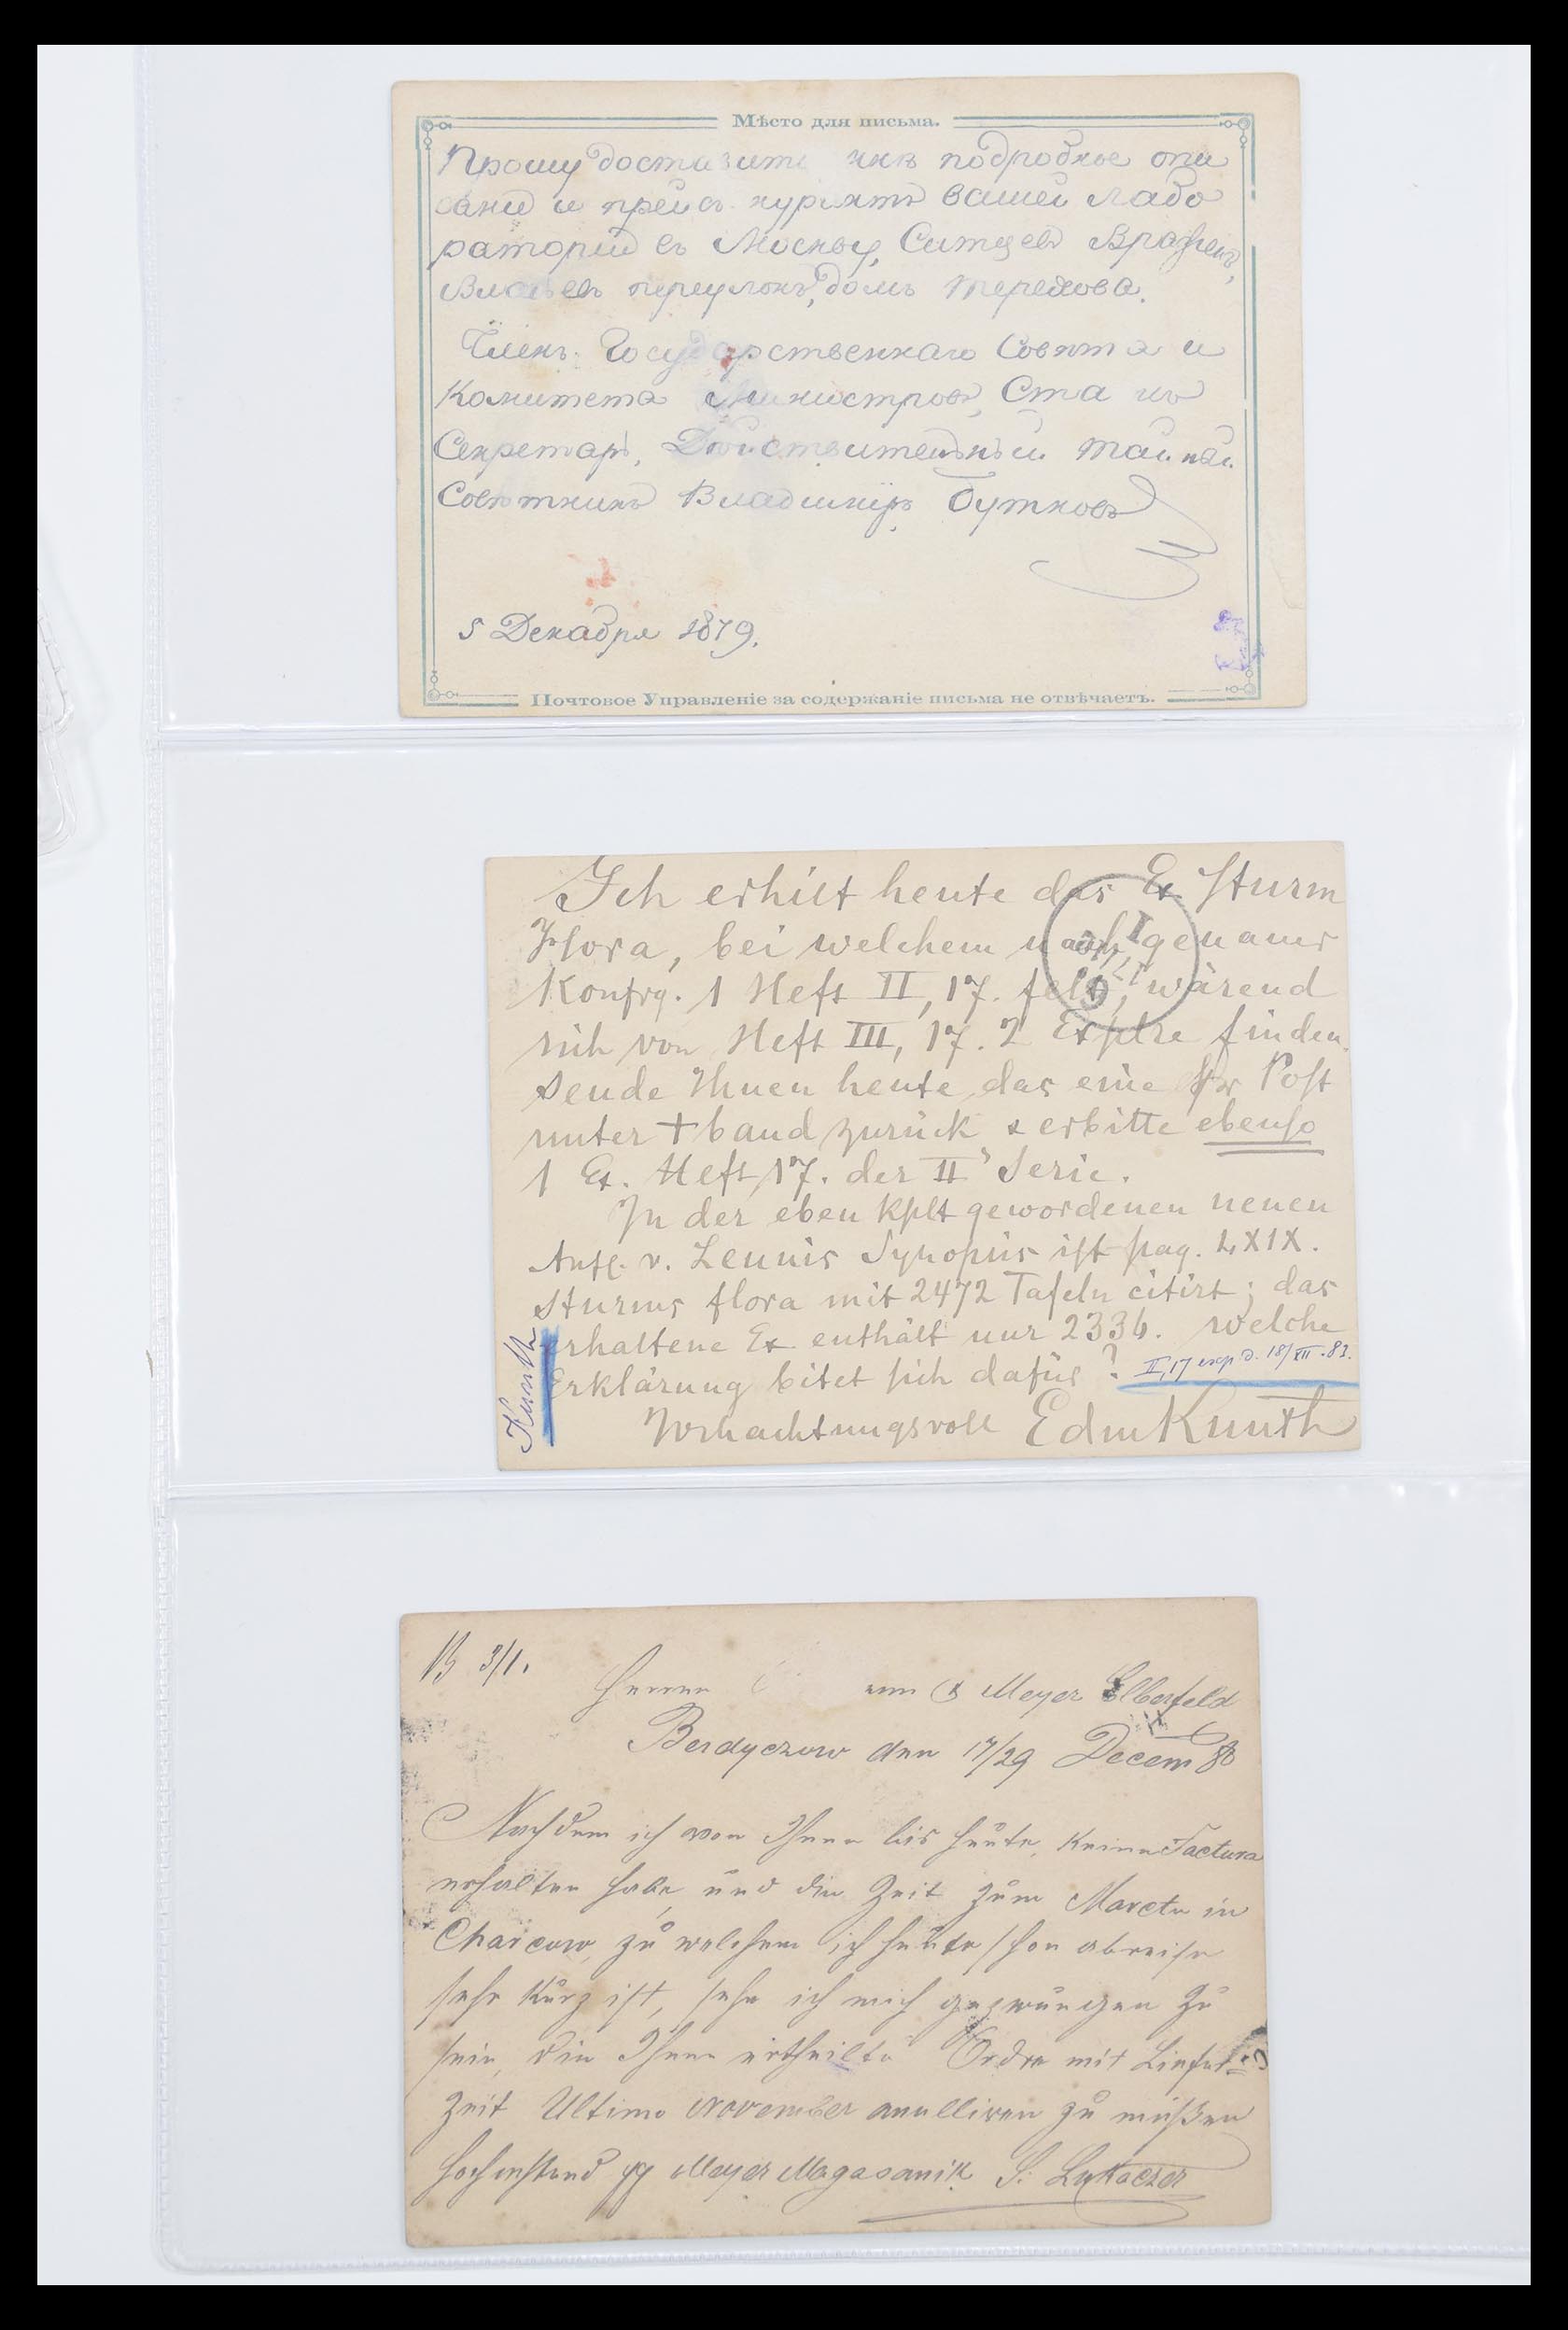 Мѣсто для письма.
Прошу доставить мнѣ подробное опи
саніе и прейсъ-курантъ вашей лабо
раторіи въ Москву, Сивцевъ Вражекъ,
переулокъ, домъ Терехова.
Членъ Государственнаго Совѣта и
Комитета Министровъ, Ста тсъ
Секретарь, Дѣйствительный тайный
Совѣтникъ Владиміръ Бутковъ
5 Декабря 1879.
Почтовое Управленіе за содержаніе письма не отвѣчаетъ.
Ich erhilt heute das Ex Sturm
Flora, bei welchem nach genauer
1 Heft II, 17. felt, wärend
sich von Heft III, 17. 2 Explre finden.
sende Ihnen heute das eine pr Post
unter + band zurück & erbitte ebenso
1 Ex. Heft 17. der II Serie.
In der eben kplt gewordenen neuen
Aufl. v. Leunis Synopsis ist pag. LXIX.
Sturms flora mit 2472 Tafeln citirt; das
erhaltene Ex enthält nur 2336. welche
Erklärung bitet sich dafür?
II,17 exp d. 18/XII.83.
Hochachtungsvoll Edm Kunth
Kunth
B 3/1.
Herren & Meyer Elberfeld
Berdyczow den 17/29 Decem 80
Nachdem ich von Ihnen bis heute, keine Factura
erhalten habe, und die Zeit zum Markte in
Charcow, zu welchem ich heute schon abreise
sehr kurz ist, sehe ich mich gezwungen zu
sein, die Ihnen ertheilte Ordre mit Liefer=
zeit Ultimo November anulliren zu müßen
Hochachtend pp Meyer Magasanik S. Lukaczer